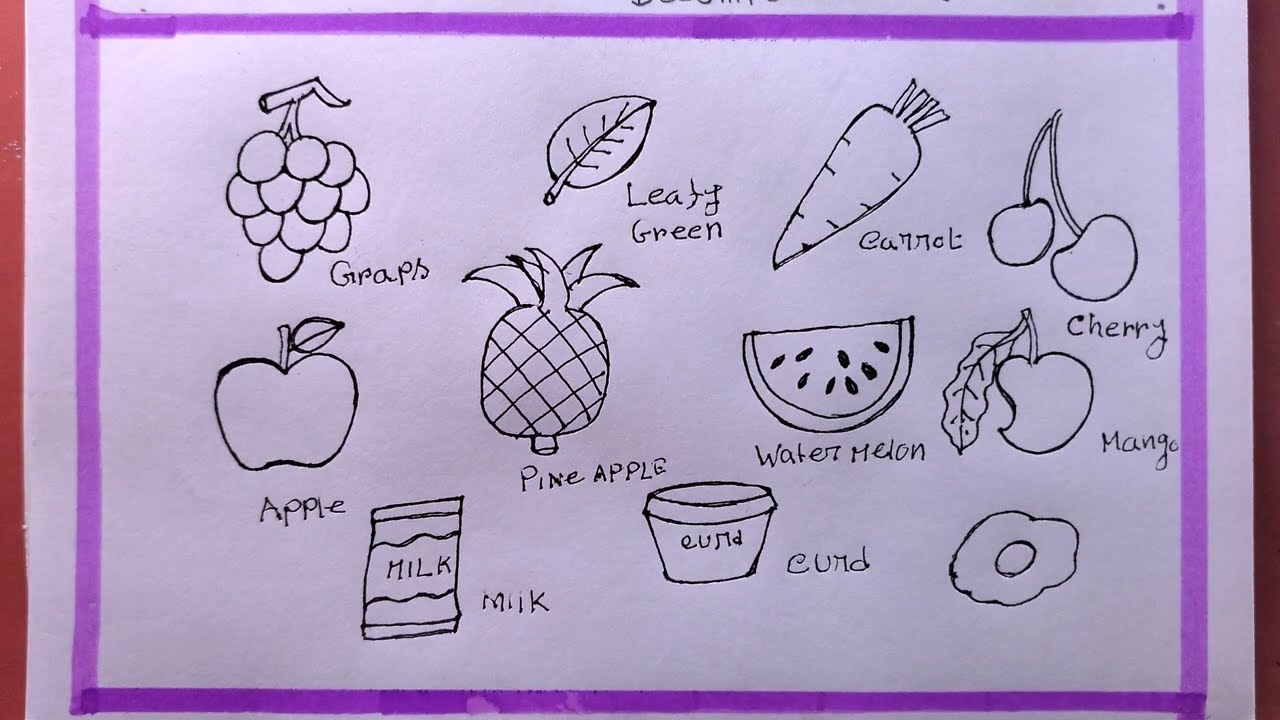 Leafy
Green
Carrot
Graps
Cherry
Mango
Water Melon
PINe APPLE
Apple
MILK
Milk
curd
curd